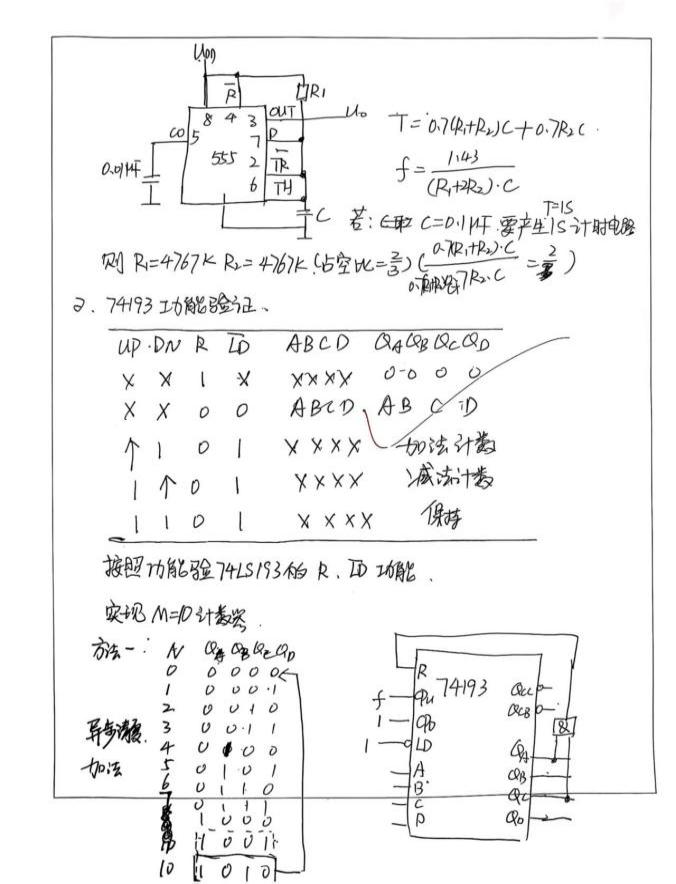 UDD
R̅
R1
OUT
U0
8 4 3
CO 5
7 D
555
2 T̅R̅
6 TH
0.01μF
C
T=0.7(R1+R2)C+0.7R2C.
f=1.43/(R1+2R2)·C
T=1S
若: C=0.1μF.要产生1S计时电路
则 R1=4767K R2=4767K(占空比=2/3)(0.7(R1+R2)·C/ 7R2·C=2/3)
2. 74193功能验证.
UP DN R L̅D̅ ABCD QA QB QC QD
X X 1 X XXXX 0 0 0 0
X X 0 0 ABCD A B C D
↑ 1 0 1 XXXX 加法计数
1 ↑ 0 1 XXXX 减法计数
1 1 0 1 XXXX 保持
按照功能验74LS193的 R、L̅D̅ 功能.
实现 M=10计数器
方法一: N QA QB QC QD
0 0 0 0 0
1 0 0 0 1
2 0 0 1 0
3 0 0 1 1
4 0 1 0 0
5 0 1 0 1
6 0 1 1 0
7 0 1 1 1
1 0 0 0
1 0 0 1
10 1 0 1 0
异步清零
加法
R
74193
f CPU
1 CPD
1 LD
A
B
C
D
QCC
QCB
&
QA
QB
QC
QD